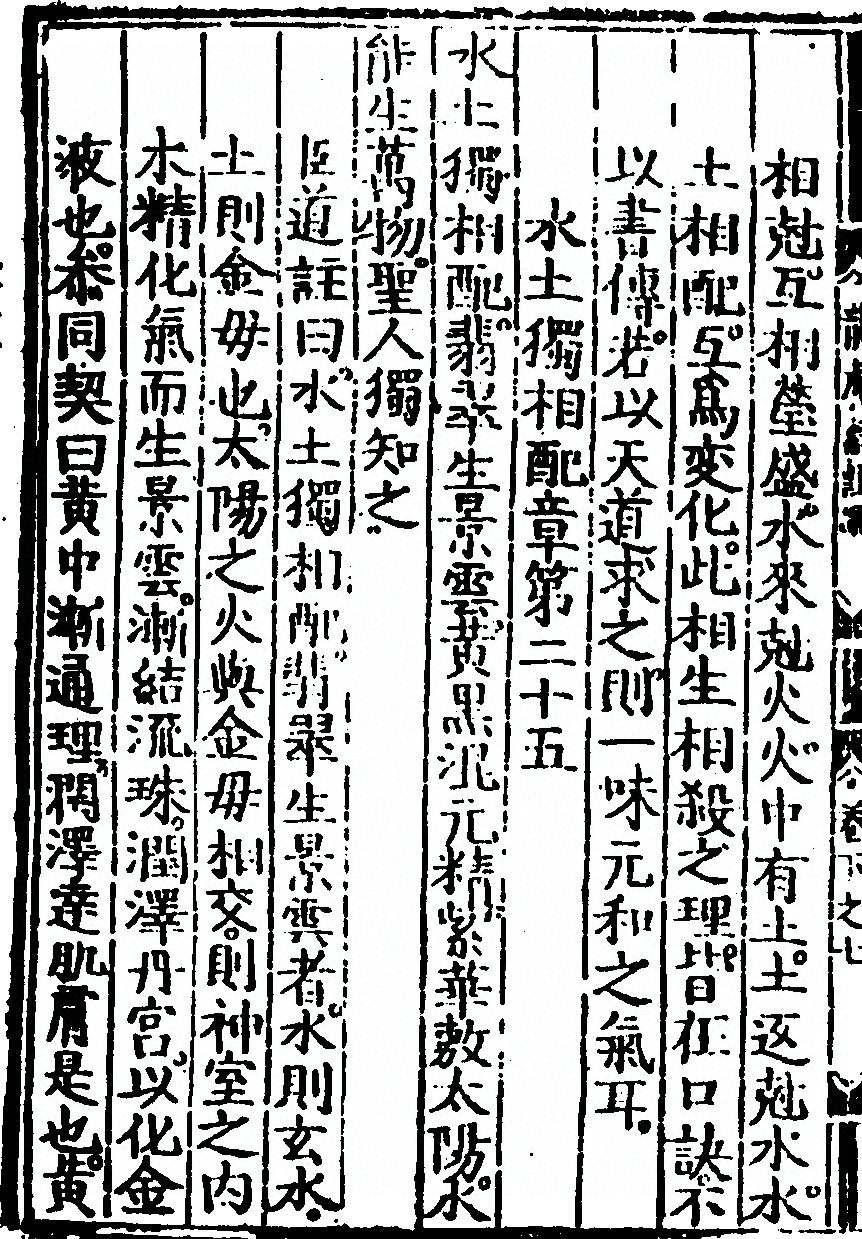 相尅互相瑩盛水來尅火火中有土土返尅水水
土相配互爲变化此相生相殺之理皆在口訣不
以書傳若以天道求之則一味元和之氣耳
水土獨相配章第二十五
水土獨相配翡翠生景雲黃黑混元精紫華敷太陽水
能生萬物聖人獨知之
臣道註曰水土獨相配翡翠生景雲者水則玄水
土則金毋也太陽之火與金毋相交則神室之內
木精化氣而生景雲漸結流珠潤澤丹宮以化金
液也叅同契曰黃中漸通理潤澤達肌膚是也黃